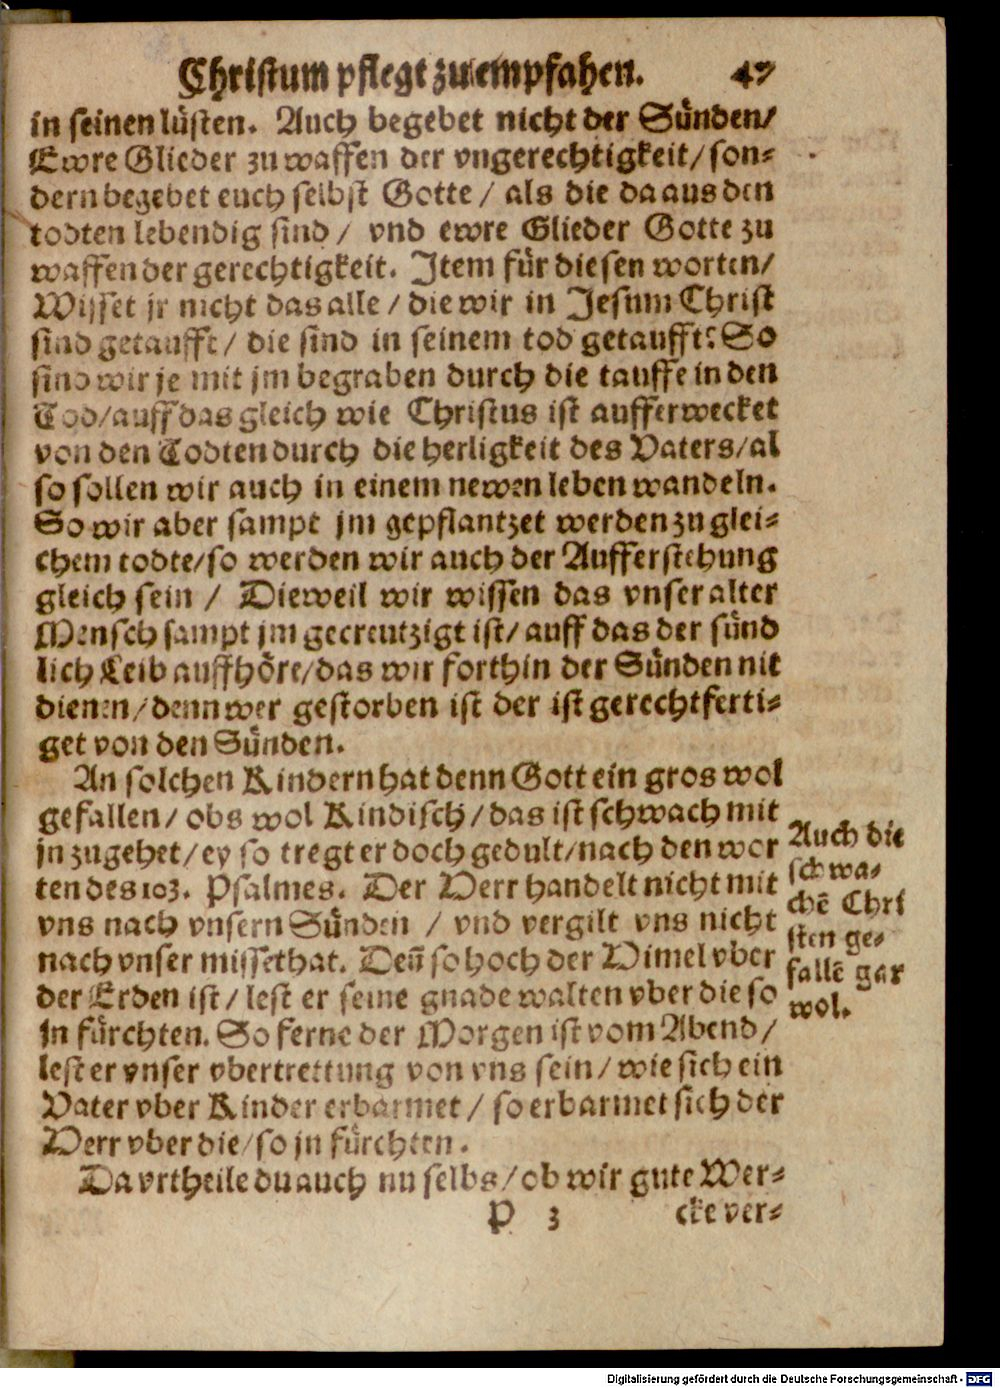 Christum pflegt zu empfahen. 47
in seinen lüsten. Auch begebet nicht der Sünden/
Ewre Glieder zu waffen der vngerechtigkeit/son-
dern begebet euch selbst Gotte / als die da aus den
todten lebendig sind / vnd ewre Glieder Gotte zu
waffen der gerechtigkeit. Item für diesen worten/
Wisset jr nicht das alle / die wir in Jesum Christ
sind getaufft / die sind in seinem tod getaufft? So
sind wir je mit jm begraben durch die tauffe in den
Tod/auff das gleich wie Christus ist aufferwecket
von den Todten durch die herligkeit des Vaters/al
so sollen wir auch in einem newen leben wandeln.
So wir aber sampt jm gepflantzet werden zu glei-
chem todte/so werden wir auch der Aufferstehung
gleich sein / Dieweil wir wissen das vnser alter
Mensch sampt jm gecreutzigt ist/auff das der sünd
lich Leib auffhöre/das wir forthin der Sünden nit
dienen/denn wer gestorben ist der ist gerechtferti-
get von den Sünden.
An solchen Kindern hat denn Gott ein gros wol
gefallen / obs wol Kindisch / das ist schwach mit
jn zugehet/ey so tregt er doch gedult/nach den wor
ten des 103. Psalmes. Der Herr handelt nicht mit
vns nach vnsern Sünden / vnd vergilt vns nicht
nach vnser missethat. Deñ so hoch der Himel vber
der Erden ist / lest er seine gnade walten vber die so
jn fürchten. So ferne der Morgen ist vom Abend/
lest er vnser vbertrettung von vns sein / wie sich ein
Vater vber Kinder erbarmet / so erbarmet sich der
Herr vber die/so jn fürchten.
Da vrtheile du auch nu selbs/ob wir gute Wer-
P 3 cke ver-
Auch die
schwa-
chẽ Chri
sten ge-
fallẽ gar
wol.
Digitalisierung gefördert durch die Deutsche Forschungsgemeinschaft - DFG